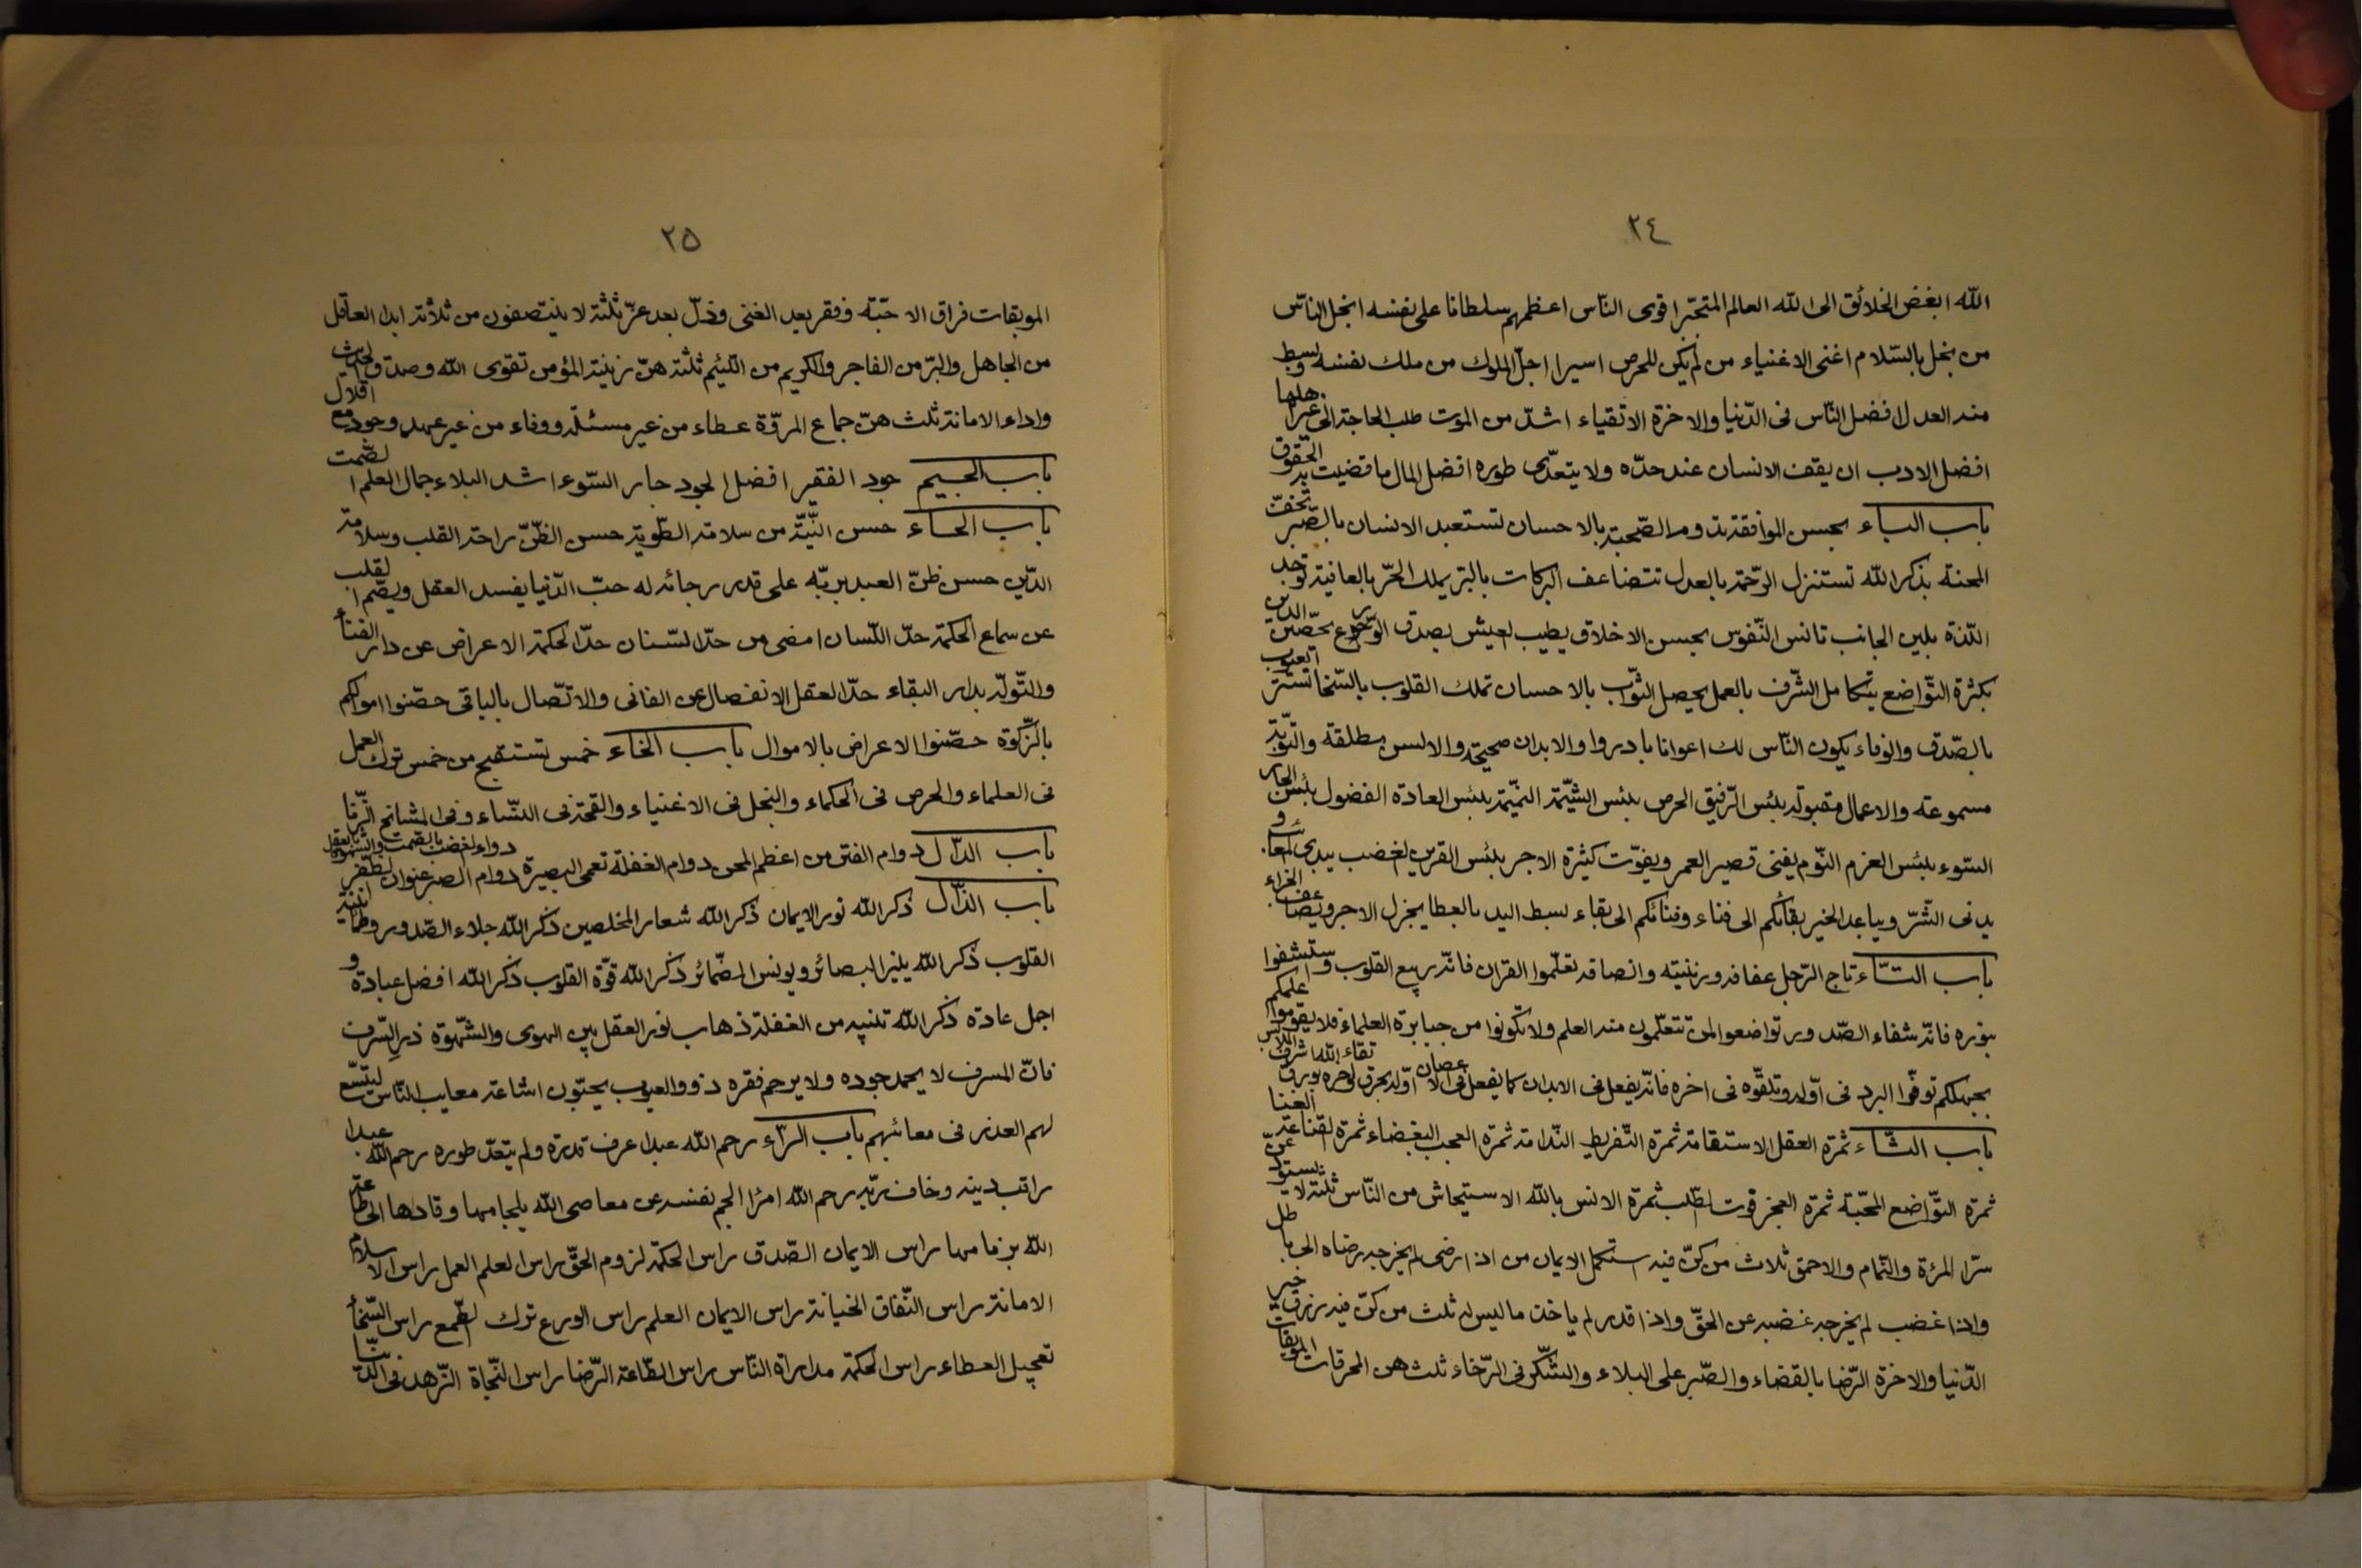 ٢٤
الله ابغض الخلائق الى الله العالم المتجبّر اقوى النّاس اعظمهم سلطانا على نفسه ابخل النّاس
من بخل بالسّلام اغنى الاغنياء من لم يكن للحرص اسيرا اجلّ الملوك من ملك نفسه وبسط
منه العدل افضل النّاس فى الدّنيا والاخرة الاتقياء اشدّ من الموت طلب الحاجة الى غير اهلها
افضل الادب ان يقف الانسان عند حدّه ولا يتعدّى طوره افضل المال ما قضيت به الحقوق
باب الباء بحسن الموافقة تدوم الصّحبة بالاحسان تستعبد الانسان بالصّبر تخفّ
المحنة بذكر الله تستنزل الرّحمة بالعدل تتضاعف البركات بالبرّ يملك الحرّ بالعافية توجد
اللّذة بلين الجانب تانس النّفوس بحسن الاخلاق يطيب العيش بصدق الورع يحصّن الدين
بكثرة التّواضع يتكامل الشّرف بالعمل يحصل الثّواب بالاحسان تملك القلوب بالسّخا تستر العيوب
بالصّدق والوفاء يكون النّاس لك اعوانا بادروا والابدان صحيحة والالسن مطلقة والتّوبة
مسموعة والاعمال مقبولة بئس الرّفيق الحرص بئس الشّيمة النّميمة بئس العادة الفضول بئس الجار
السّوء بئس العزم النّوم يفنى قصير العمر ويفوّت كثيرة الاجر بئس القرين الغضب يبدى المعائب و
يدنى الشّرّ ويباعد الخير بقائكم الى فناء وفنائكم الى بقاء بسط اليد بالعطا يجزل الاجر ويضاعف الجزاء
باب التّاء تاج الرّجل عفافه وزينته وانصافه تعلّموا القران فانّه ربيع القلوب واستشفوا
بنوره فانّه شفاء الصّدور تواضعوا لمن تتعلّمون منه العلم ولا تكونوا من جبابرة العلماء فلا يقوموا علمكم
بجهلكم توقّوا البرد فى اوّله وتلقّوه فى اخره فانّه يفعل فى الابدان كما يفعل فى الاغصان اوّله يحرق واخره يورق
باب الثّاء ثمرة العقل الاستقامة ثمرة التّفريط النّدامة ثمرة العجب البغضاء ثمرة القناعة الغنا
ثمرة التّواضع المحبّة ثمرة العجز فوت الطّلب ثمرة الانس بالله الاستيحاش من النّاس ثلثة لا يستودعنّ
سّرا المرئة والنّمام والاحمق ثلاث من كنّ فيه استكمل الايمان من اذا رضى لم يخرجه رضاه الى باطل
واذا غضب لم يخرجه غضبه عن الحقّ واذا قدر لم ياخذ ما ليس له ثلث من كنّ فيه رزق خير
الدّنيا والاخرة الرّضا بالقضاء والصّبر على البلاء والشّكر فى الرّخاء ثلث هن المحرقات الموبقات
٢٥
الموبقات فراق الاحبّة وفقر بعد الغنى وذلّ بعد عزّ ثلثة لا ينتصفون من ثلاثة ابدا العاقل
من الجاهل والبرّ من الفاجر والكريم من اللّئيم ثلثة هنّ زينة المؤمن تقوى الله وصدق الحديث
واداء الامانة ثلث هنّ جماع المروّة عطاء من غير مسئلة ووفاء من غير عهد وجود مع اقلال
باب الجيم جود الفقير افضل الجود جار السّوء اشد البلاء جمال العلم الصّمت
باب الحاء حسن النّيّة من سلامة الطّوية حسن الظّنّ راحة القلب وسلامة
الدّين حسن ظنّ العبد بربّه على قدر رجائه له حبّ الدّنيا يفسد العقل ويصّم القلب
عن سماع الحكمة حدّ اللّسان امضى من حدّ السّنان حدّ الحكمة الاعراض عن دار الفناء
والتّولّه بدار البقاء حدّ العقل الانفصال عن الفانى والاتّصال بالباقى حصّنوا اموالكم
بالزّكوة حصّنوا الاعراض بالاموال باب الخاء خمس تستقبح من خمس ترك العمل
فى العلماء والحرص فى الحكماء والبخل فى الاغنياء والقحة فى النّساء وفى المشائخ الزّنا
باب الدّال دوام الفتن من اعظم المحن دوام الغفلة تعمى البصيرة دوام الصبر عنوان الظّفر دواء الغضب بالصّمت والشّهوة بالعقل
باب الذّال ذكر الله نور الايمان ذكر الله شعار المخلصين ذكر الله جلاء الصّدور وطمانينة
القلوب ذكر الله ينير البصائر ويونس الضّمائر ذكر الله قوّة القلوب ذكر الله افضل عبادة و
اجمل عادة ذكر الله تنبيه من الغفلة ذهاب نور العقل بين الهوى والشّهوة ذر السّرف
فانّ المسرف لا يحمد جوده ولا يرحم فقره ذوو العيوب يحبّون اشاعة معايب النّاس ليتسّع
لهم العذر فى معائبهم باب الرّاء رحم الله عبدا عرف قدره ولم يتعدّ طوره رحم الله عبدا
راقب دينه وخاف ربّه رحم الله امرا الجم نفسه عن معاصى الله بلجامها وقادها الى طاعة
الله بزمامها راس الايمان الصّدق راس الحكمة لزوم الحقّ راس العلم العمل راس الاسلام
الامانة راس النّفاق الخيانة راس الايمان العلم راس الورع ترك الطّمع راس السّخاء
تعجيل العطاء راس الحكمة مداراة النّاس راس الطّاعة الرّضا راس النّجاة الزّهد فى الدّنيا